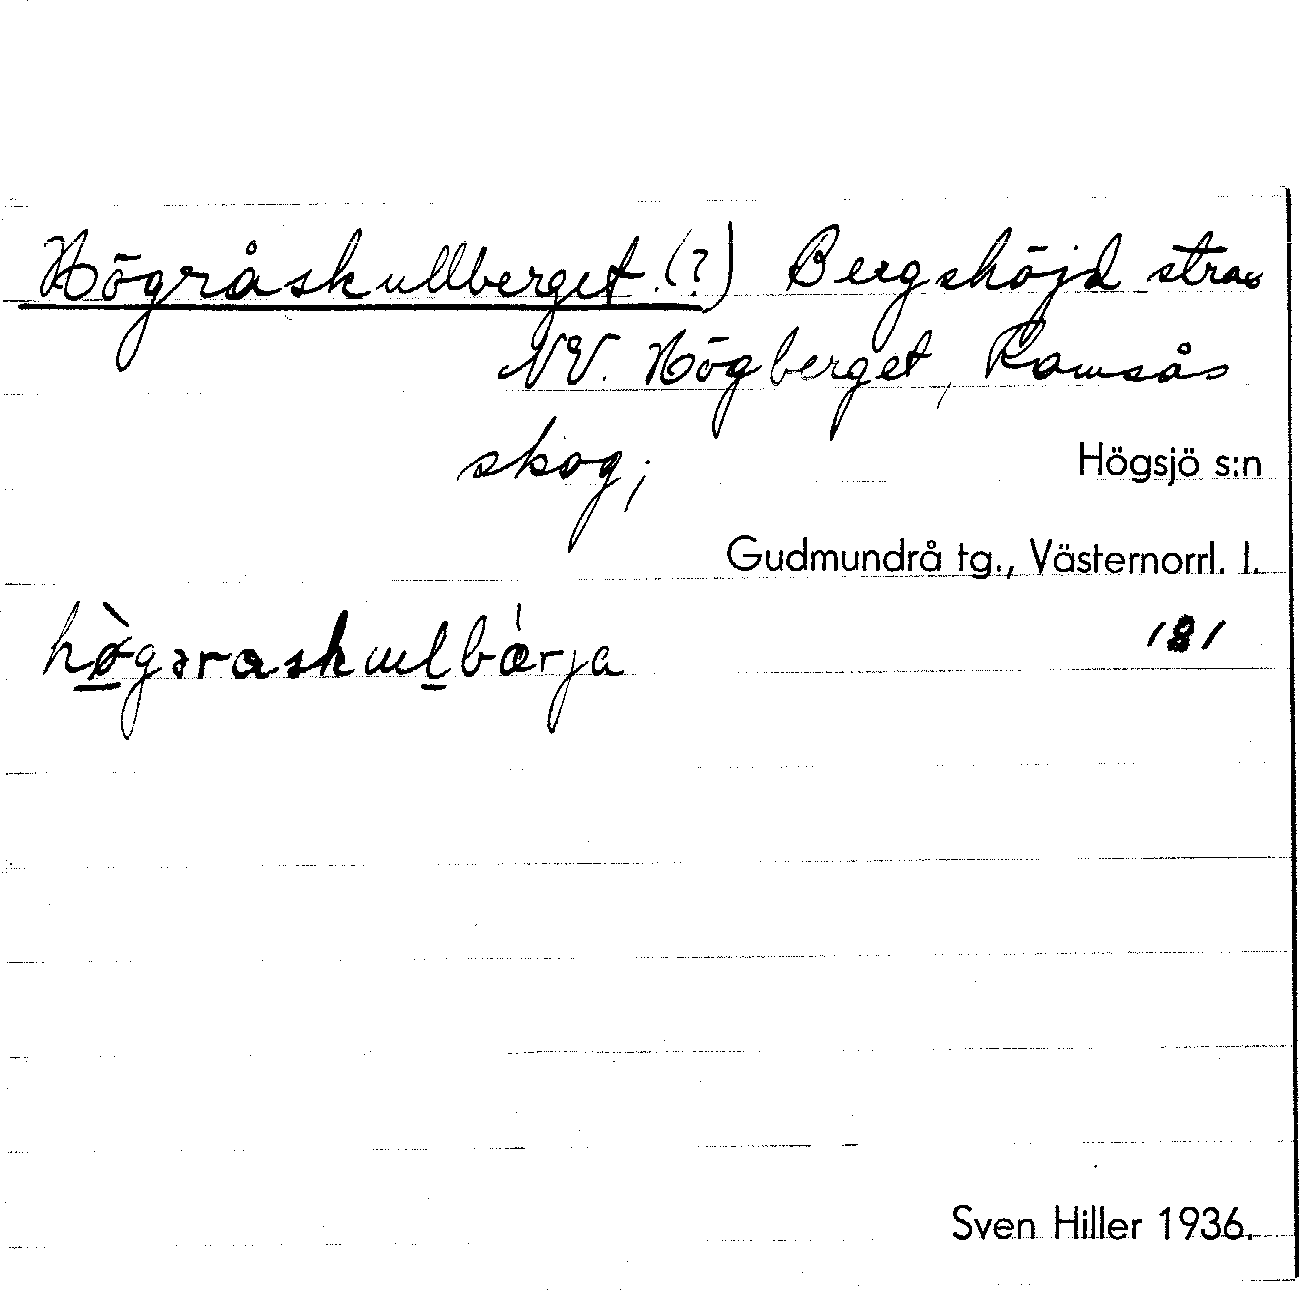 Högråskullberget (?) Bergshöjd strax
NV. Högberget, Ramsås
skog;
Högsjö s:n
Gudmundrå tg., Västernorrl. l.
hø̀gəraskulbǽrja
181
Sven Hiller 1936.